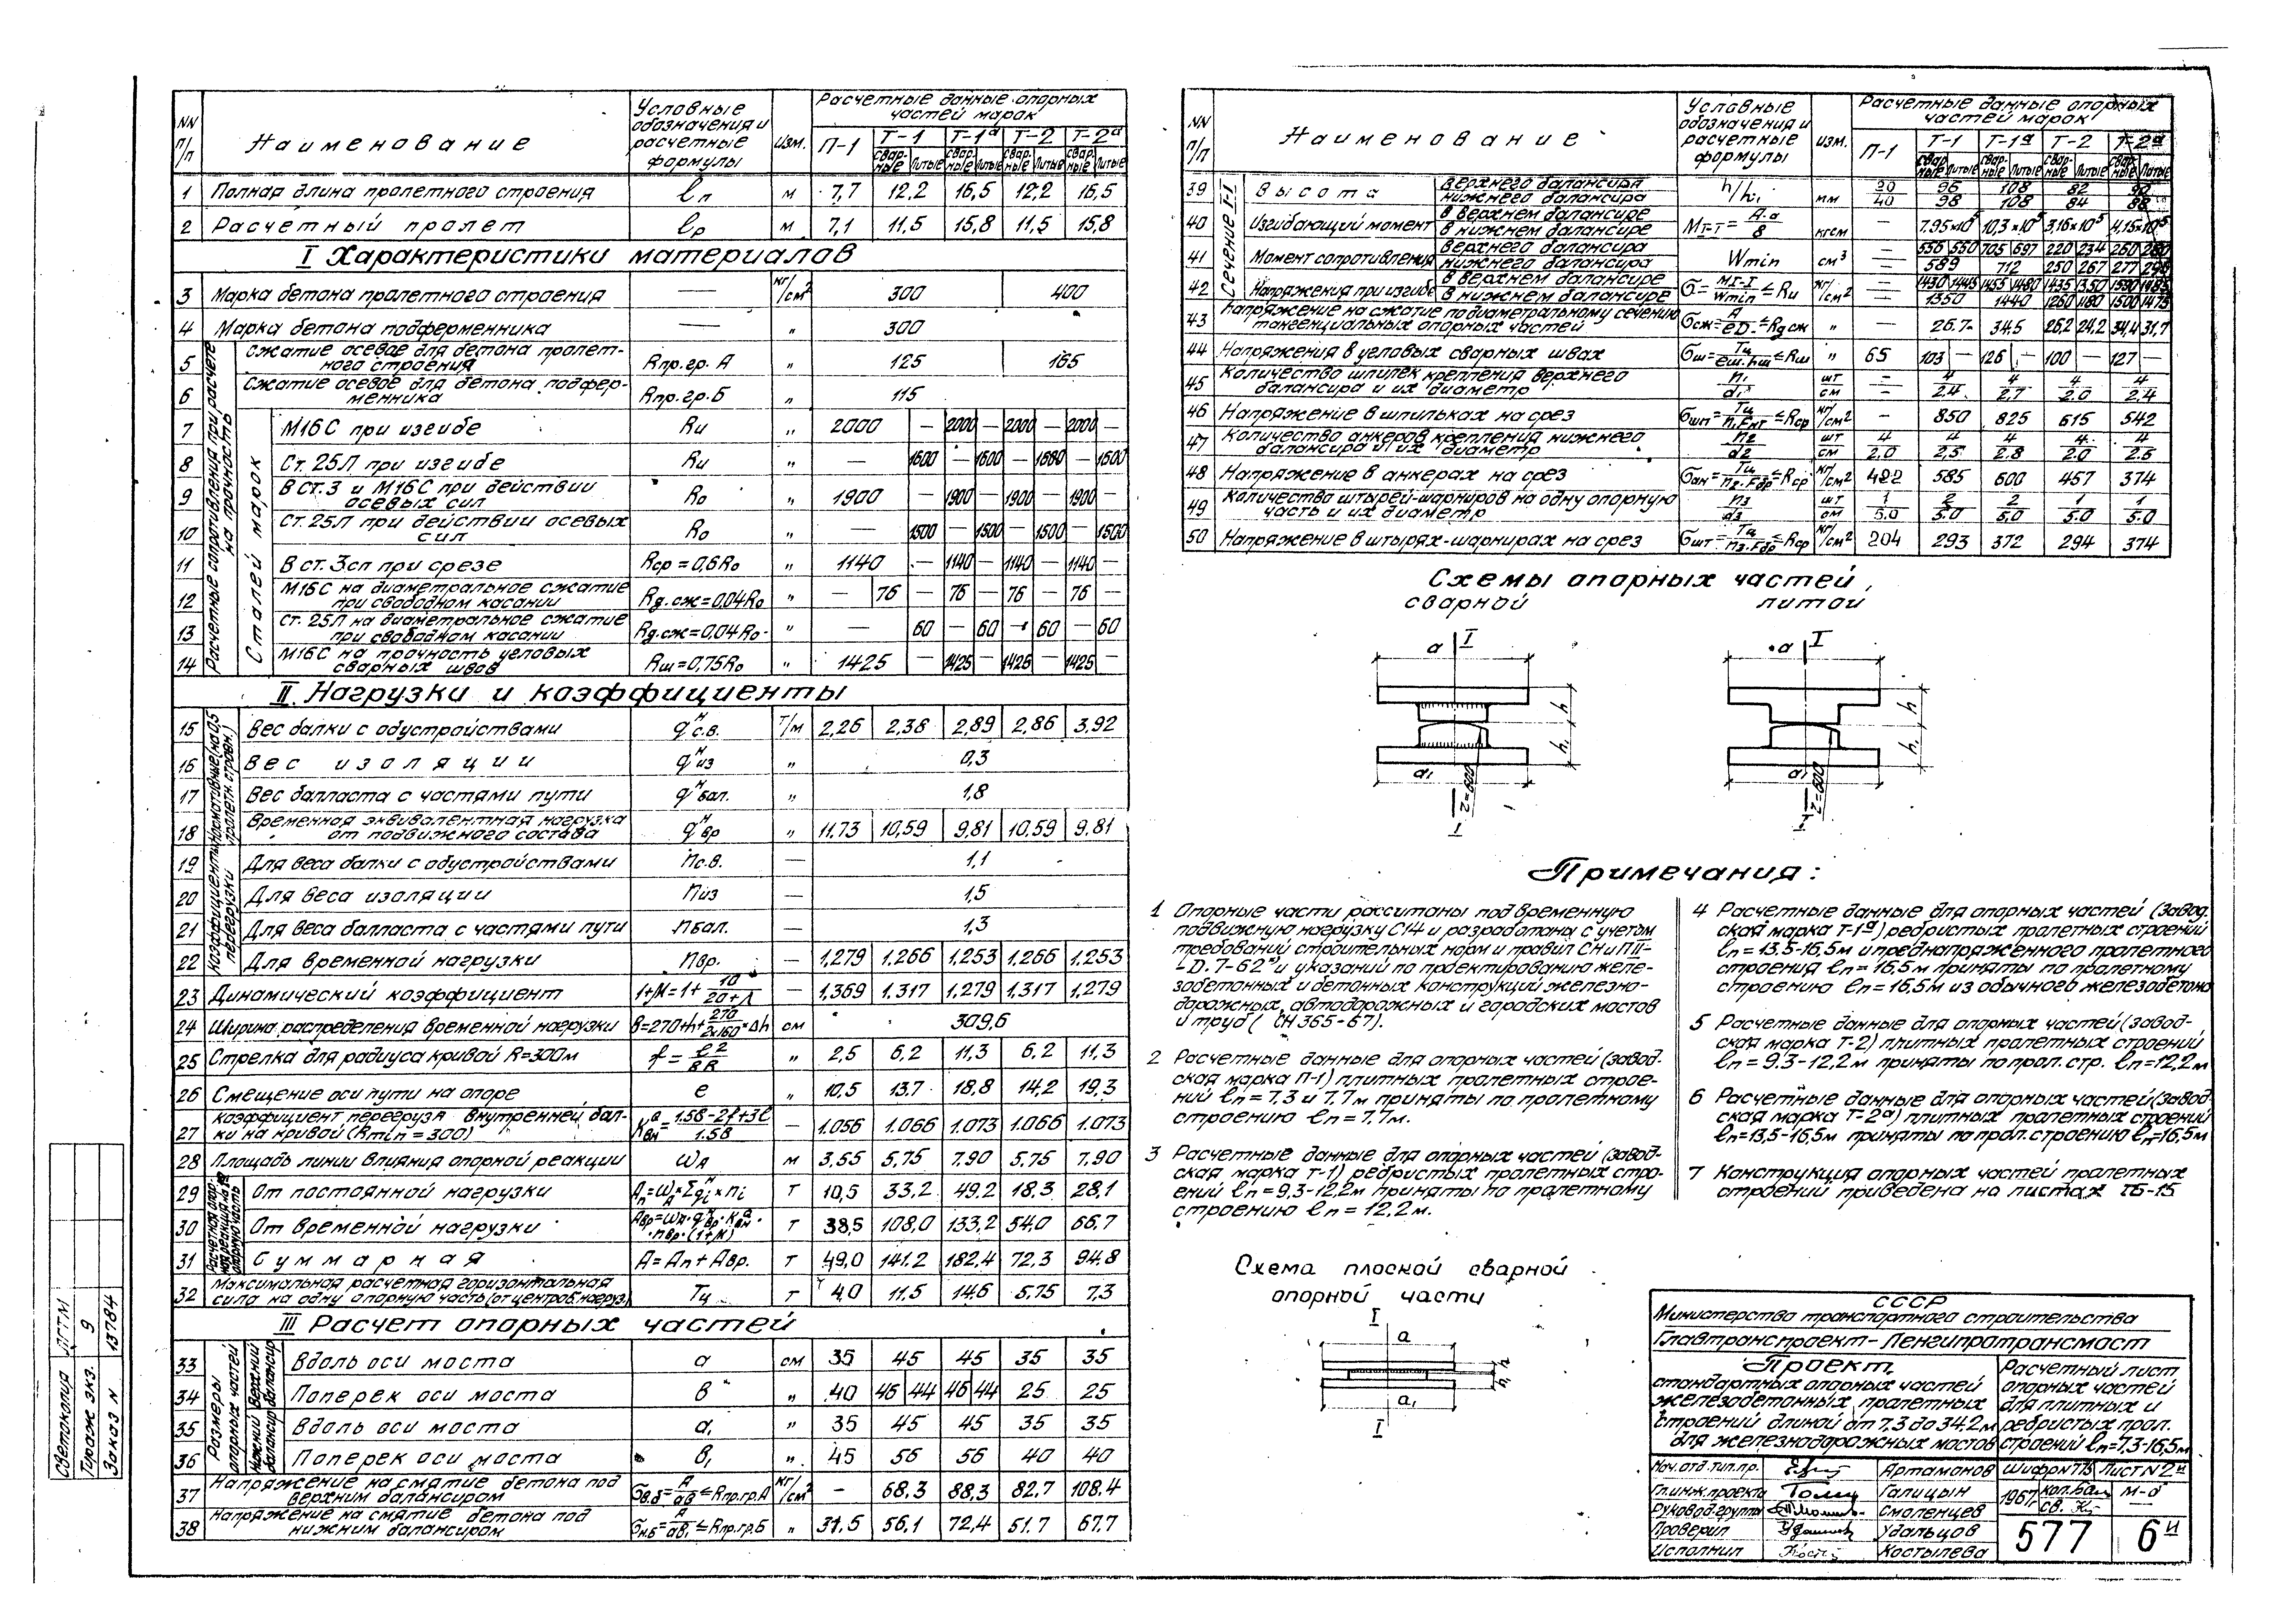 NN п/п Наименование Условные обозначения и расчетные формулы изм. Расчетные данные опорных частей марок
П-1 Т-1 Т-1а Т-2 Т-2а
сварные литые сварные литые сварные литые сварные литые
1 Полная длина пролетного строения ℓп м 7,7 12,2 16,5 12,2 16,5
2 Расчетный пролет ℓр м 7,1 11,5 15,8 11,5 15,8
I Характеристики материалов
3 Марка бетона пролетного строения — кг/см² 300 400
4 Марка бетона подферменника — " 300
Расчетные сопротивления при расчете на прочность
5 Сжатие осевое для бетона пролетного строения Rпр.гр.А " 125 165
6 Сжатие осевое для бетона подферменника Rпр.гр.Б " 115
Сталей марок
7 М16С при изгибе Rи " 2000 — 2000 — 2000 — 2000 —
8 Ст. 25Л при изгибе Rи " — 1600 — 1600 — 1600 — 1600
9 В ст.3 и М16С при действии осевых сил Rо " 1900 — 1900 — 1900 — 1900 —
10 Ст. 25Л при действии осевых сил Rо " — 1500 — 1500 — 1500 — 1500
11 В ст. 3сп при срезе Rср = 0,6Rо " 1140 — 1140 — 1140 — 1140 —
12 М16С на диаметральное сжатие при свободном касании Rд.сж=0,04Rо " — 76 — 76 — 76 — 76 —
13 Ст. 25Л на диаметральное сжатие при свободном касании Rд.сж=0,04Rо " — 60 — 60 — 60 — 60
14 М16С на прочность угловых сварных швов Rш=0,75Rо " 1425 — 1425 — 1425 — 1425 —
II Нагрузки и коэффициенты
Нормативные (на 0,5 пролетн. строен.)
15 Вес балки с обустройствами qнс.в. т/м 2,26 2,38 2,89 2,86 3,92
16 Вес изоляции qниз " 0,3
17 Вес балласта с частями пути qнбал. " 1,8
18 Временная эквивалентная нагрузка от подвижного состава qнвр " 11,73 10,59 9,81 10,59 9,81
Коэффициенты перегрузки
19 Для веса балки с обустройствами nс.в. — 1,1
20 Для веса изоляции nиз — 1,5
21 Для веса балласта с частями пути nбал. — 1,3
22 Для временной нагрузки nвр. — 1,279 1,266 1,253 1,266 1,253
23 Динамический коэффициент 1+μ=1+10/20+λ — 1,369 1,317 1,279 1,317 1,279
24 Ширина распределения временной нагрузки в=270+h+270/2×160×Δh см 309,6
25 Стрелка для радиуса кривой R=300м f=ℓ2/8R " 2,5 6,2 11,3 6,2 11,3
26 Смещение оси пути на опоре е " 10,5 13,7 18,8 14,2 19,3
27 Коэффициент перегруза внутренней балки на кривой (Rmin=300) Kавн=1.5в-2f+3ℓ/1.5в — 1.056 1.066 1.073 1.066 1.073
28 Площадь линии влияния опорной реакции ωА м 3,55 5,75 7.90 5,75 7.90
29 От постоянной нагрузки Ап=ωА×Σqнi×ni т 10,5 33,2 49,2 18.3 28,1
30 От временной нагрузки Авр=ωА·qнвр·Kавн·nвр·(1+μ) т 38,5 108,0 133,2 54.0 66.7
31 Суммарная А=Ап+Авр. т 49,0 141.2 182,4 72,3 94.8
32 Максимальная расчетная горизонтальная сила на одну опорную часть (от центроб. нагруз.) Тц т 4,0 11.5 14,6 5,75 7,3
III Расчет опорных частей
Размеры опорных частей
Верхний балансир
33 Вдоль оси моста а см 35 45 45 35 35
34 Поперек оси моста в " 40 46 44 46 44 25 25
Нижний балансир
35 Вдоль оси моста а₁ " 35 45 45 35 35
36 Поперек оси моста в₁ " 45 56 56 40 40
37 Напряжение на смятие бетона под верхним балансиром σв.б=А/ав≤Rпр.гр.А кг/см² — 68.3 88,3 82,7 108.4
38 Напряжение на смятие бетона под нижним балансиром σн.б=А/ав₁≤Rпр.гр.Б " 31,5 56,1 72,4 51.7 67.7
NN п/п Наименование Условные обозначения и расчетные формулы изм. Расчетные данные опорных частей марок
П-1 Т-1 Т-1а Т-2 Т-2а
сварные литые сварные литые сварные литые сварные литые
Сечение I-I
39 Высота верхнего балансира / нижнего балансира h/h₁ мм 20/40 96/98 108/108 82/84 90/88
40 Изгибающий момент в верхнем балансире / в нижнем балансире МI-I=А·а/8 кгсм — 7.95×10⁵ 10,3×10⁵ 3,16×10⁵ 4,15×10⁵
41 Момент сопротивления верхнего балансира / нижнего балансира Wmin см³ — 556 550 705 697 220 234 260 280
— 589 712 250 267 277
42 Напряжения при изгибе в верхнем балансире / в нижнем балансире σ=МI-I/Wmin≤Rи кг/см² — 1430 1445 1455 1480 1435 1350
— 1350 1440 1260 1180 1500 1475
43 Напряжение на сжатие по диаметральному сечению тангенциальных опорных частей σсж=А/ℓD≤Rдсж " — 26.7 34.5 26,2 24,2 34,4 31,7
44 Напряжения в угловых сварных швах σш=Тц/ℓш.hш≤Rш " 65 103 — 126 — 100 — 127 —
45 Количество шпилек крепления верхнего балансира и их диаметр n₁/d₁ шт/см — 4/2.4 4/2.7 4/2.0 4/2.4
46 Напряжение в шпильках на срез σшп=Тц/n₁Fнт≤Rср кг/см² - 850 825 615 542
47 Количество анкеров крепления нижнего балансира и их диаметр n₂/d₂ шт/см 4/2.0 4/2,5 4/2.8 4/2.0 4/2.5
48 Напряжение в анкерах на срез σан=Тц/n₂.Fбр≤Rср кг/см² 422 585 600 457 374
49 Количество штырей-шарниров на одну опорную часть и их диаметр n₃/d₃ шт/см 1/5.0 2/5.0 2/5.0 1/5.0 1/5.0
50 Напряжение в штырях-шарнирах на срез σшт.=Тц/n₃.Fбр≤Rср кг/см² 204 293 372 294 374
Схемы опорных частей
сварной литой
а I а I
h h
h₁ h₁
а₁ а₁
r=600 r=600
I I
Примечания:
1 Опорные части рассчитаны под временную
подвижную нагрузку С14 и разработаны с учетом
требований строительных норм и правил СНиП II-
-Д.7-62 и указаний по проектированию желе-
зобетонных и бетонных конструкций железно-
дорожных, автодорожных и городских мостов
и труб ( СН 365-67).
2 Расчетные данные для опорных частей (завод-
ская марка П-1) плитных пролетных строе-
ний ℓп=7,3 и 7,7м приняты по пролетному
строению ℓп=7,7м.
3 Расчетные данные для опорных частей (завод-
ская марка Т-1) ребристых пролетных стро-
ений ℓп=9,3-12,2м приняты по пролетному
строению ℓп = 12,2 м.
4 Расчетные данные для опорных частей (завод.
ская марка Т-1а) ребристых пролетных строений
ℓп=13,5-16,5м и преднапряженного пролетного
строения ℓп=16,5м приняты по пролетному
строению ℓп=16,5м из обычного железобетона
5 Расчетные данные для опорных частей (завод-
ская марка Т-2) плитных пролетных строений
ℓп=9,3-12,2м приняты по прол. стр. ℓп=12,2м
6 Расчетные данные для опорных частей (завод-
ская марка Т-2а) плитных пролетных строений
ℓп=13,5-16,5м приняты по прол. строению ℓп=16,5м
7 Конструкция опорных частей пролетных
строений приведена на листах
Схема плоской сварной
опорной части
I
а
h
h₁
а₁
I
СССР
Министерство транспортного строительства
Главтранспроект-Ленгипротрансмост
Проект
стандартных опорных частей
железобетонных пролетных
строений длиной от 7,3 до 34,2м
для железнодорожных мостов
Расчетный лист
опорных частей
для плитных и
ребристых прол.
строений ℓп=7,3-16,5м
Нач. отд. тип. пр. Артамонов Шифр Лист N 2и
Гл. инж. проекта Галицын 1967 м-б
Руковод. группы Смоленцев св. —
Проверил Удальцов 577 6и
Исполнил Костылева
Светокопия ЛГТМ
Тираж экз. 9
Заказ N 13784